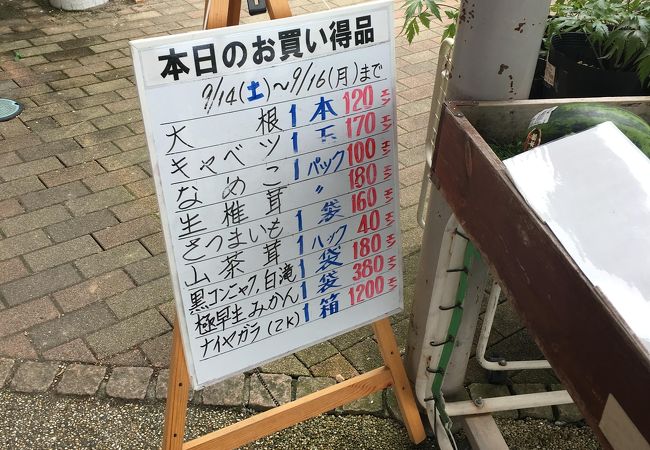 本日のお買い得品
9/14(土)~9/16(月)まで
大根 1本 120エン
キャベツ 1玉 170エン
なめこ 1パック 100エン
生椎茸 〃 180エン
さつまいも 1袋 160エン
山茶茸 1パック 40エン
黒コンニャク,白滝 1袋 180エン
極早生みかん 1袋 380エン
ナイヤガラ(2K) 1箱 1200エン